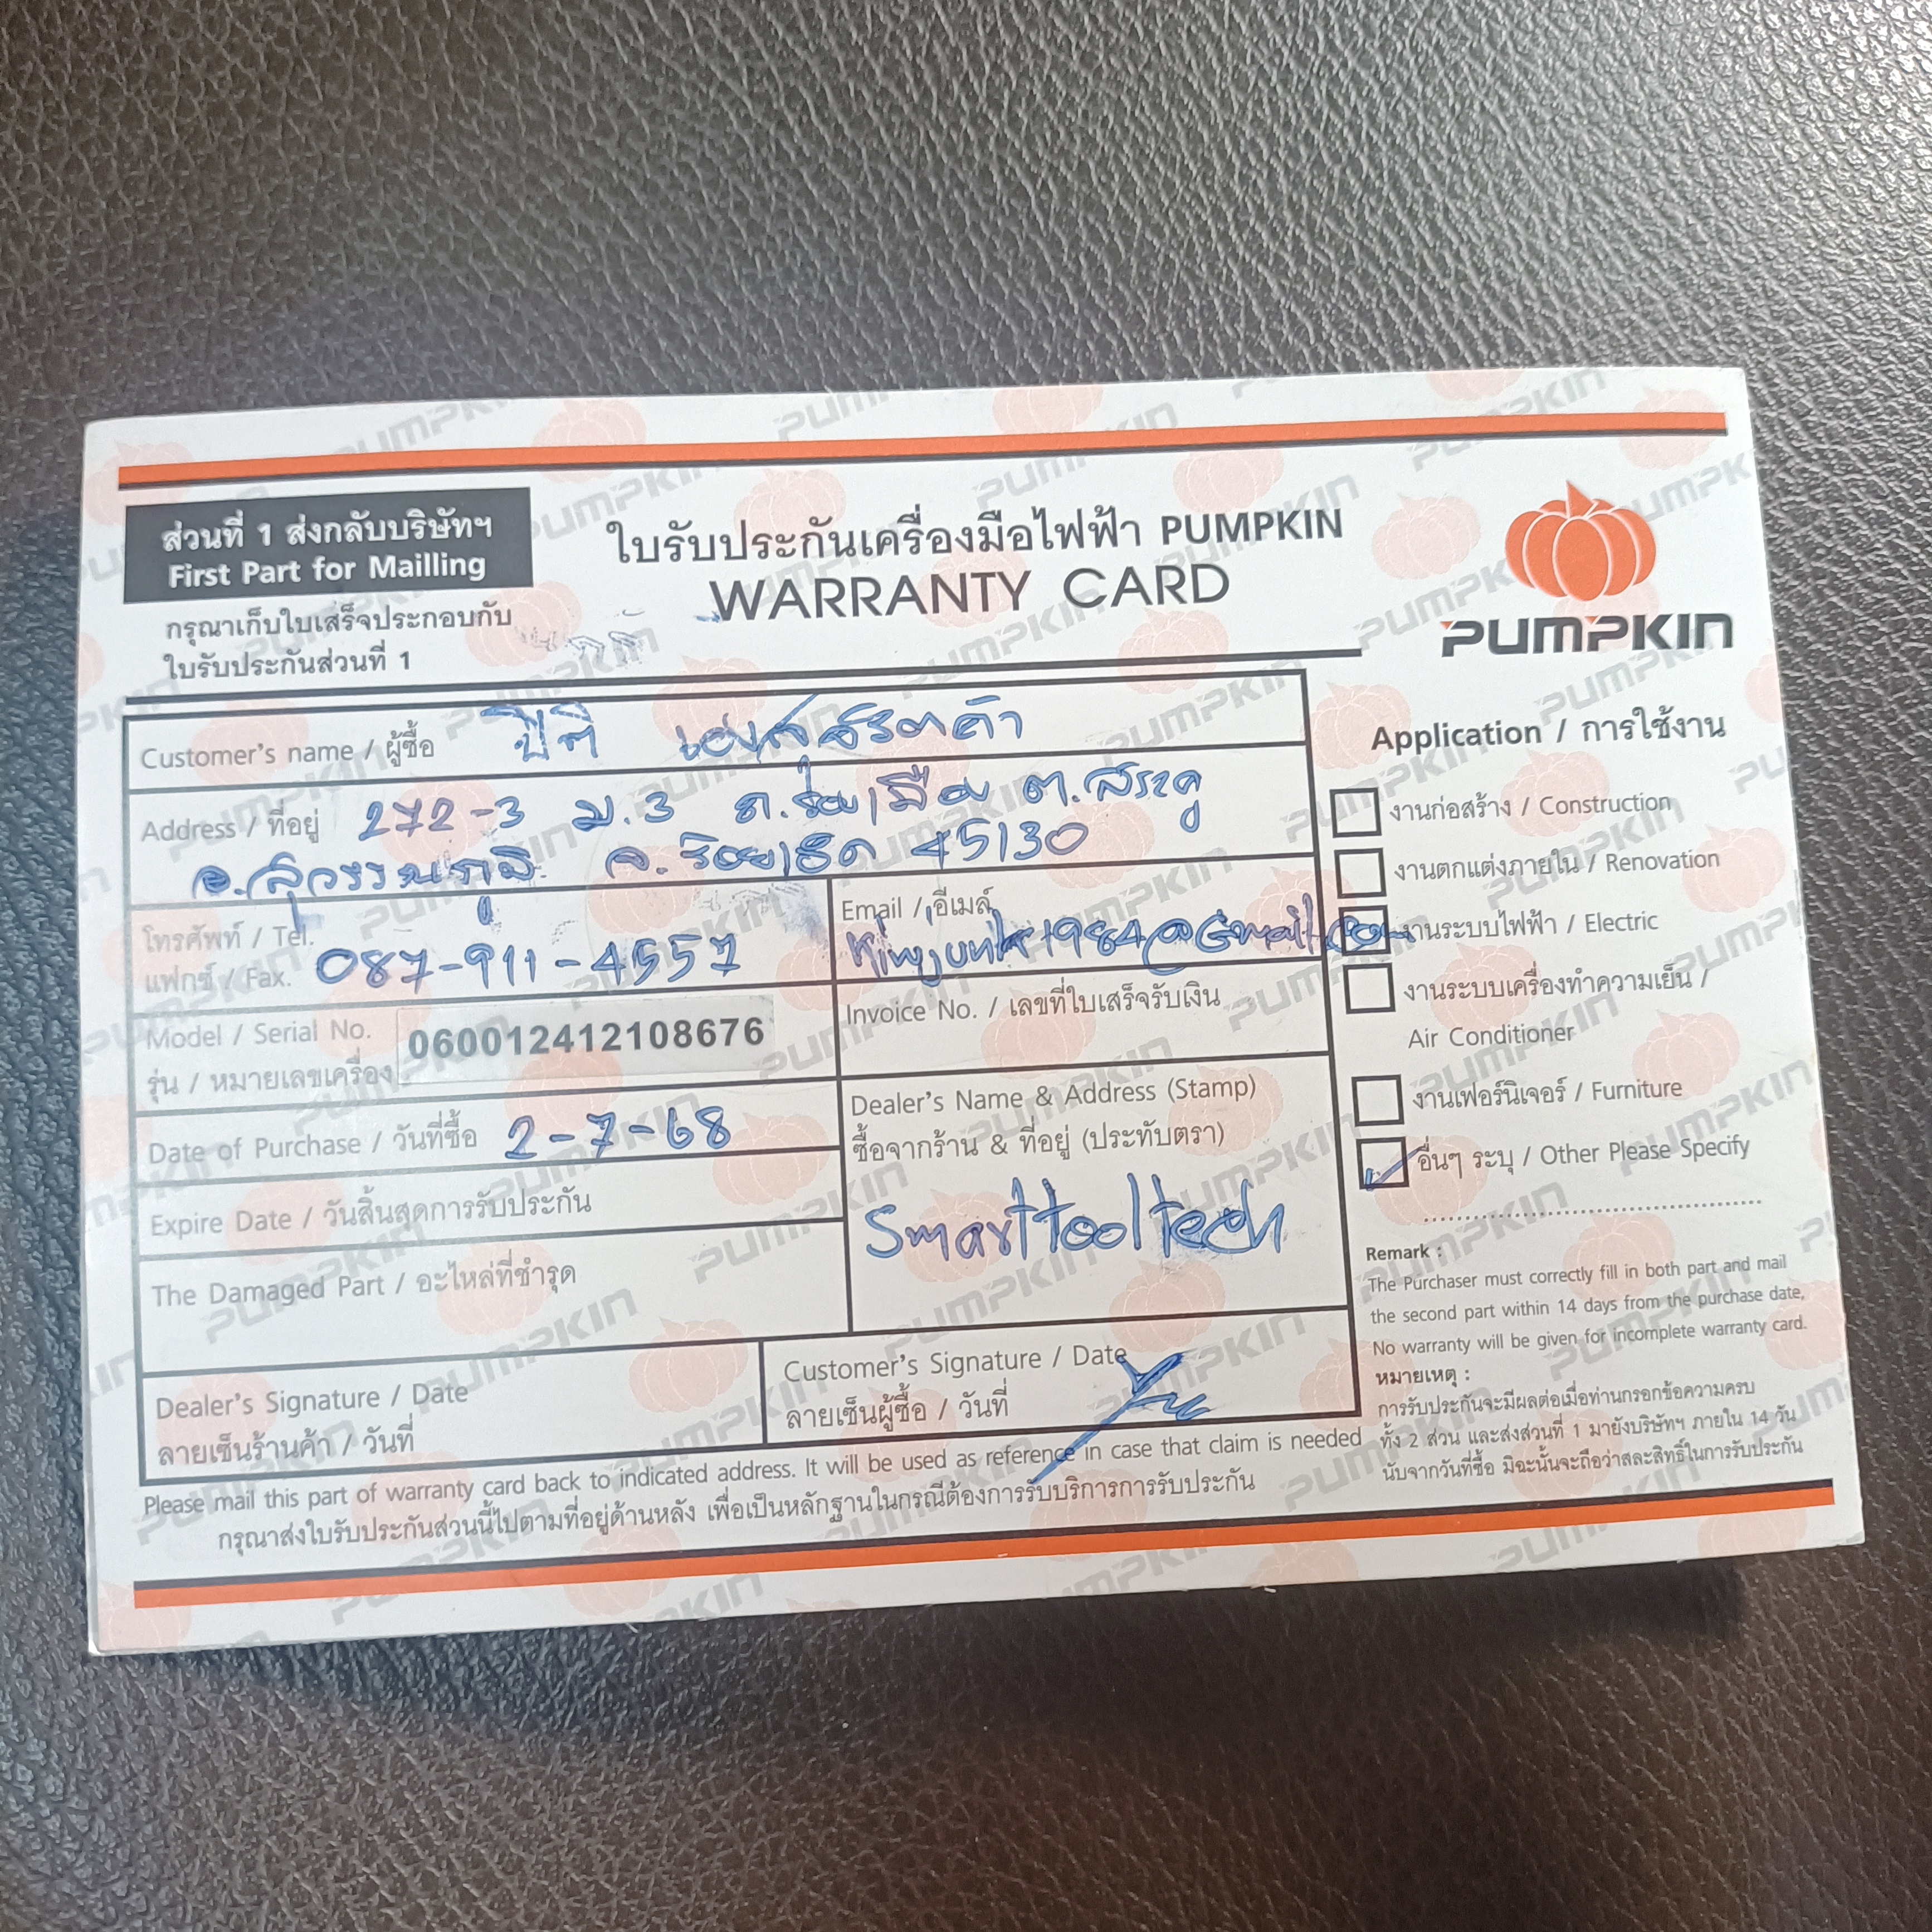 ส่วนที่ 1 ส่งกลับบริษัทฯ
First Part for Mailling
กรุณาเก็บใบเสร็จประกอบกับ
ใบรับประกันส่วนที่ 1
ใบรับประกันเครื่องมือไฟฟ้า PUMPKIN
WARRANTY CARD
PUMPKIN
Customer's name / ผู้ซื้อ ปิติ
Address / ที่อยู่ 272-3 ม.3 ต.สระคู
อ.สุวรรณภูมิ จ.ร้อยเอ็ด 45130
โทรศัพท์ / Tel.
แฟกซ์ / Fax. 087-911-4557
Email / อีเมล์
Model / Serial No. 060012412108676
รุ่น / หมายเลขเครื่อง
Invoice No. / เลขที่ใบเสร็จรับเงิน
Date of Purchase / วันที่ซื้อ 2-7-68
Expire Date / วันสิ้นสุดการรับประกัน
The Damaged Part / อะไหล่ที่ชำรุด
Dealer's Name & Address (Stamp)
ซื้อจากร้าน & ที่อยู่ (ประทับตรา)
Smarttooltech
Dealer's Signature / Date
ลายเซ็นร้านค้า / วันที่
Customer's Signature / Date
ลายเซ็นผู้ซื้อ / วันที่
Please mail this part of warranty card back to indicated address. It will be used as reference in case that claim is needed
กรุณาส่งใบรับประกันส่วนนี้ไปตามที่อยู่ด้านหลัง เพื่อเป็นหลักฐานในกรณีต้องการรับบริการการรับประกัน
Application / การใช้งาน
งานก่อสร้าง / Construction
งานตกแต่งภายใน / Renovation
งานระบบไฟฟ้า / Electric
งานระบบเครื่องทำความเย็น /
Air Conditioner
งานเฟอร์นิเจอร์ / Furniture
อื่นๆ ระบุ / Other Please Specify
Remark :
The Purchaser must correctly fill in both part and mail
the second part within 14 days from the purchase date,
No warranty will be given for incomplete warranty card.
หมายเหตุ :
การรับประกันจะมีผลต่อเมื่อท่านกรอกข้อความครบ
ทั้ง 2 ส่วน และส่งส่วนที่ 1 มายังบริษัทฯ ภายใน 14 วัน
นับจากวันที่ซื้อ มิฉะนั้นจะถือว่าสละสิทธิ์ในการรับประกัน